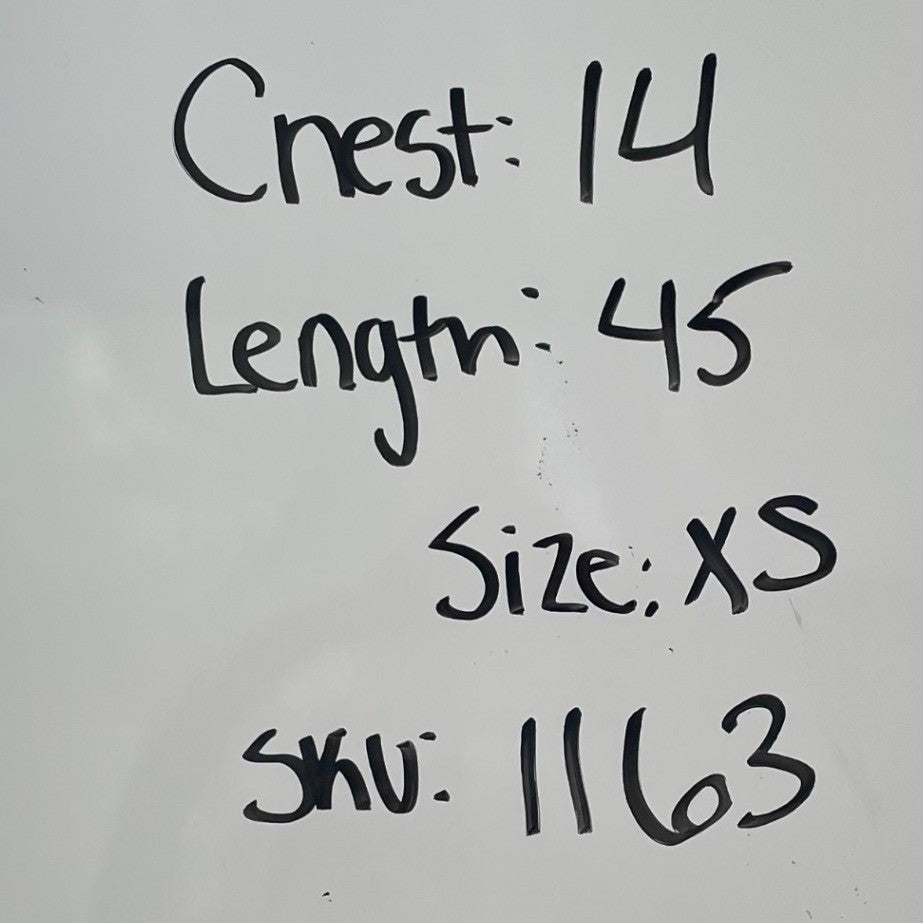 Chest: 14
Length: 45
Size: XS
SKU: 1163